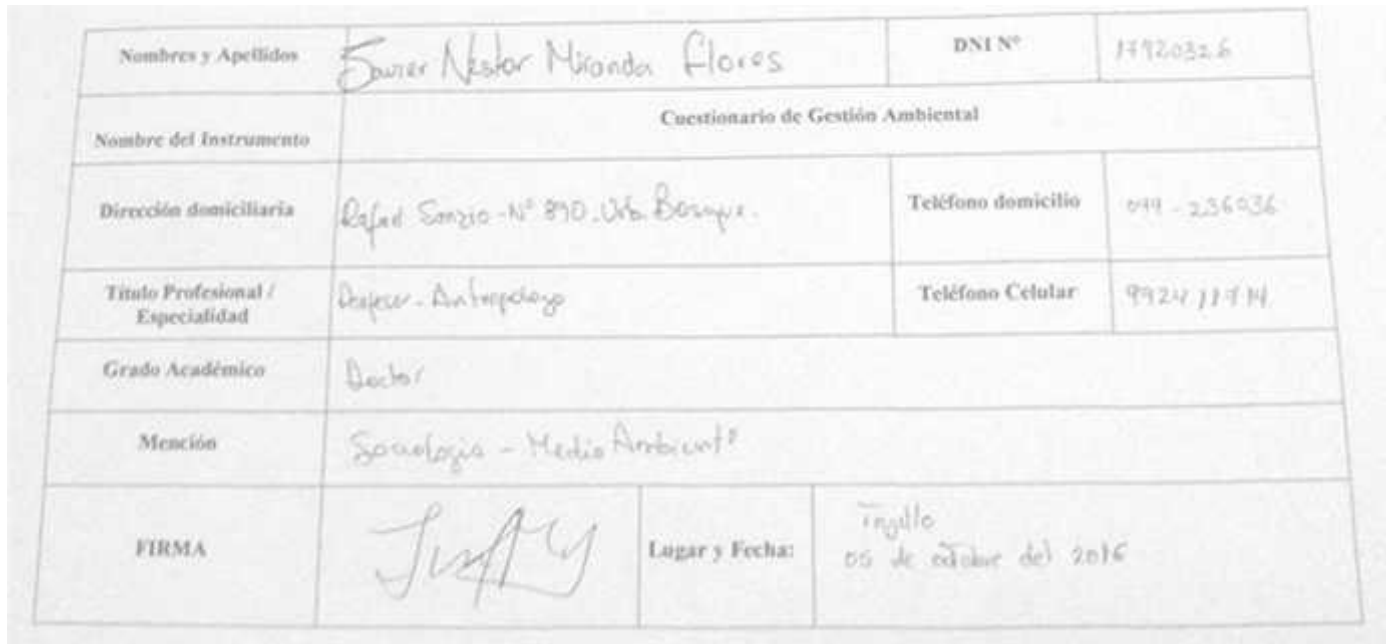 Nombres y Apellidos Javier Nestor Miranda Flores DNI Nº 17920326
Nombre del Instrumento Cuestionario de Gestión Ambiental
Dirección domiciliaria Rafael Sanzio - Nº 890 - Urb. Bosque. Teléfono domicilio 044 - 236036
Título Profesional /
Especialidad
Profesor - Antropologo Teléfono Celular
Grado Académico Doctor
Mención Sociologia - Medio Ambiente
FIRMA Lugar y Fecha: Trujillo
05 de octubre del 2016